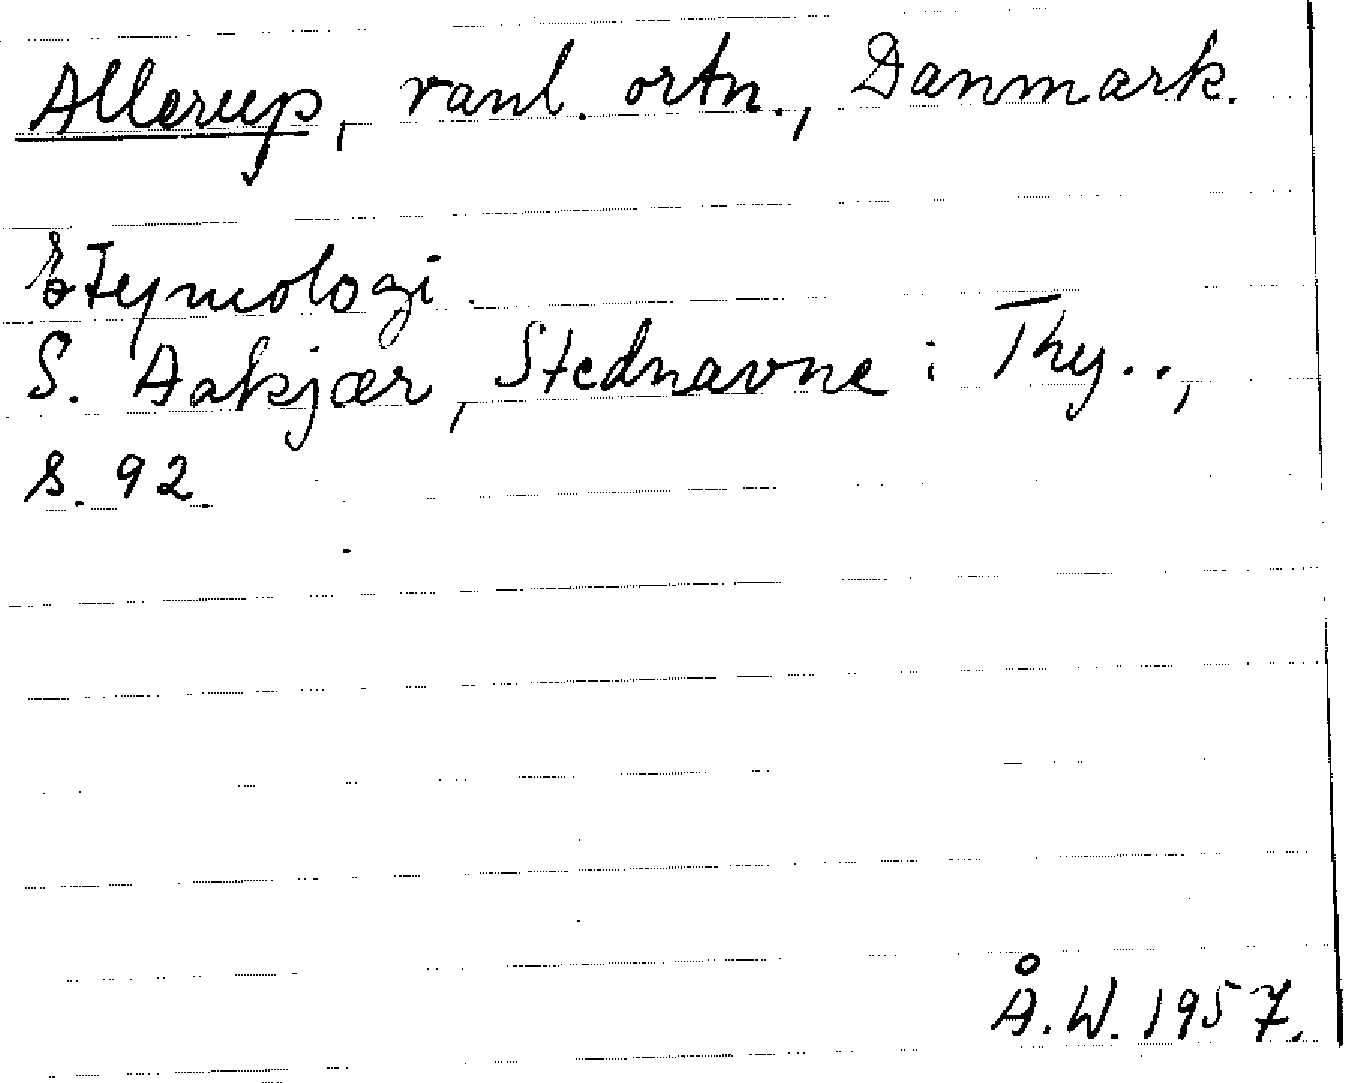 Allerup, vanl. ortn., Danmark.
Etymologi.
S. Aakjær, Stednavne i Thy..,
s. 92.
Å.W. 1957.